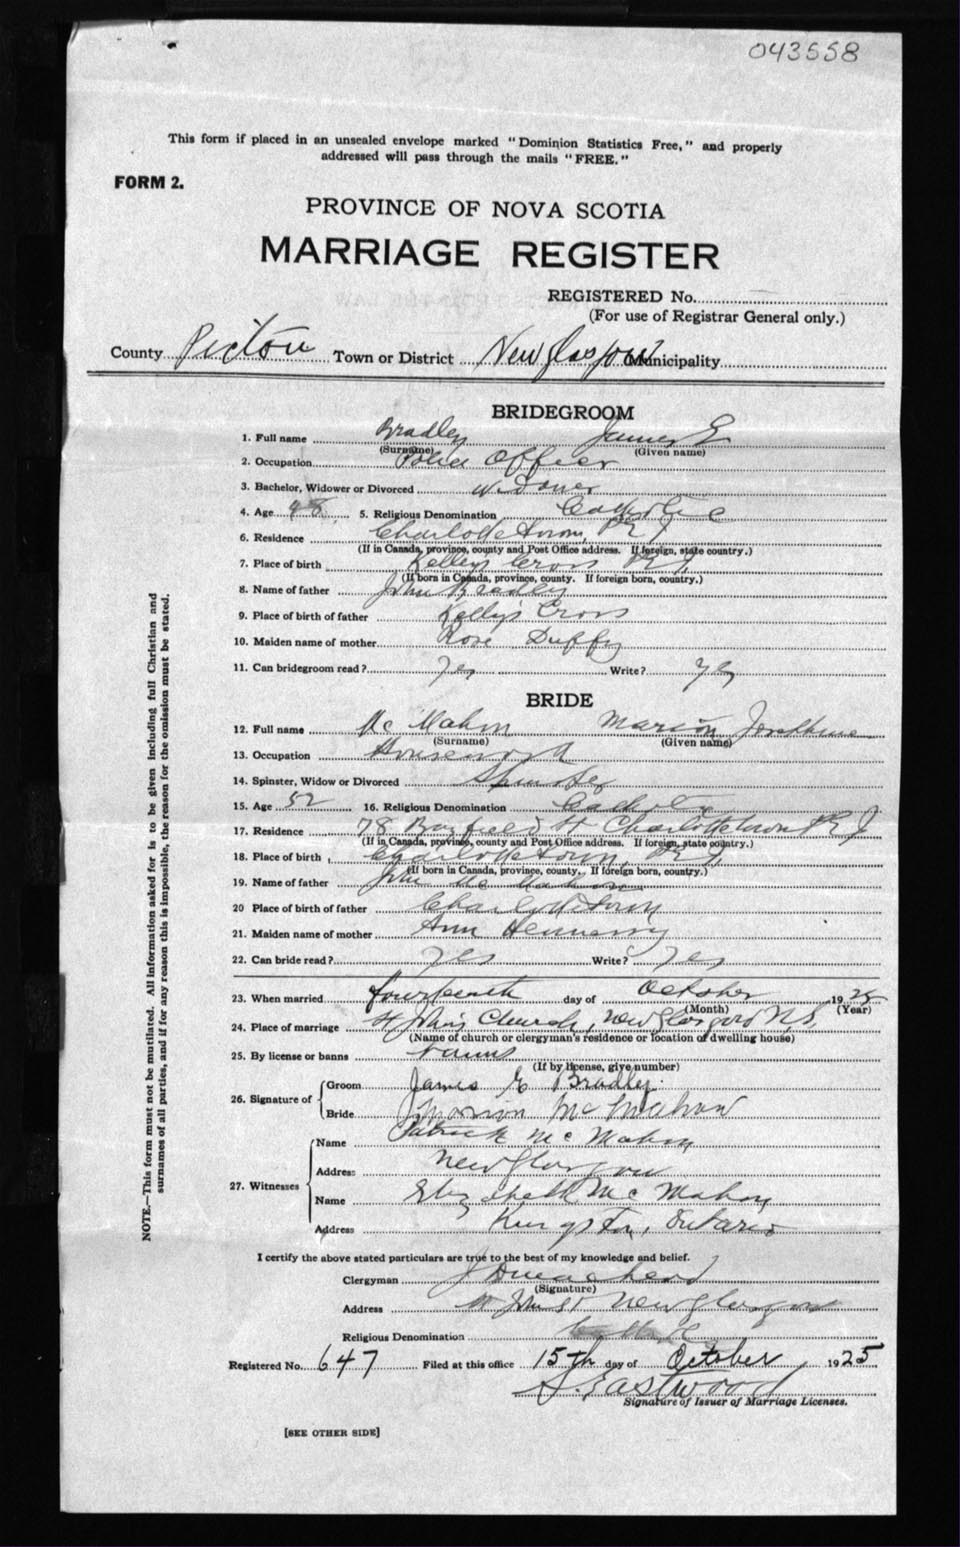 043558
This form if placed in an unsealed envelope marked "Dominion Statistics Free," and properly
addressed will pass through the mails "FREE."
FORM 2.
PROVINCE OF NOVA SCOTIA
MARRIAGE REGISTER
REGISTERED No.
(For use of Registrar General only.)
County Pictou Town or District New Glasgow Municipality
BRIDEGROOM
1. Full name Bradley James E
(Surname) (Given name)
2. Occupation Police Officer
3. Bachelor, Widower or Divorced Widower
4. Age 48 5. Religious Denomination Catholic
6. Residence Charlottetown, P E I
(If in Canada, province, county and Post Office address. If foreign, state country.)
7. Place of birth Kellys Cross P E I
(If born in Canada, province, county. If foreign born, country.)
8. Name of father John Bradley
9. Place of birth of father Kelly's Cross
10. Maiden name of mother Rose Duffy
11. Can bridegroom read? Yes Write? Yes
BRIDE
12. Full name Mc Mahon Marion Josephine
(Surname) (Given name)
13. Occupation Housework
14. Spinster, Widow or Divorced Spinster
15. Age 52 16. Religious Denomination Catholic
17. Residence 78 Bayfield St Charlottetown P E I
(If in Canada, province, county and Post Office address. If foreign, state country.)
18. Place of birth Charlottetown, P E I
(If born in Canada, province, county. If foreign born, country.)
19. Name of father John Mc Mahon
20 Place of birth of father Charlottetown
21. Maiden name of mother Ann Hennessy
22. Can bride read? Yes Write? Yes
23. When married fourteenth day of October 1925
(Month) (Year)
24. Place of marriage St John's Church, New Glasgow N.S.
(Name of church or clergyman's residence or location of dwelling house)
25. By license or banns banns
(If by license, give number)
26. Signature of Groom James E Bradley.
Bride Marion McMahon
27. Witnesses Name Patrick Mc Mahon
Address New Glasgow
Name Elizabeth Mc Mahon
Address Kingston, Ontario
I certify the above stated particulars are true to the best of my knowledge and belief.
Clergyman J
(Signature)
Address St John St New Glasgow
Religious Denomination Catholic
Registered No. 647 Filed at this office 15th day of October 1925
S. Eastwood
Signature of Issuer of Marriage Licenses.
[SEE OTHER SIDE]
NOTE.—This form must not be mutilated. All information asked for is to be given including full Christian and
surnames of all parties, and if for any reason this is impossible, the reason for the omission must be stated.